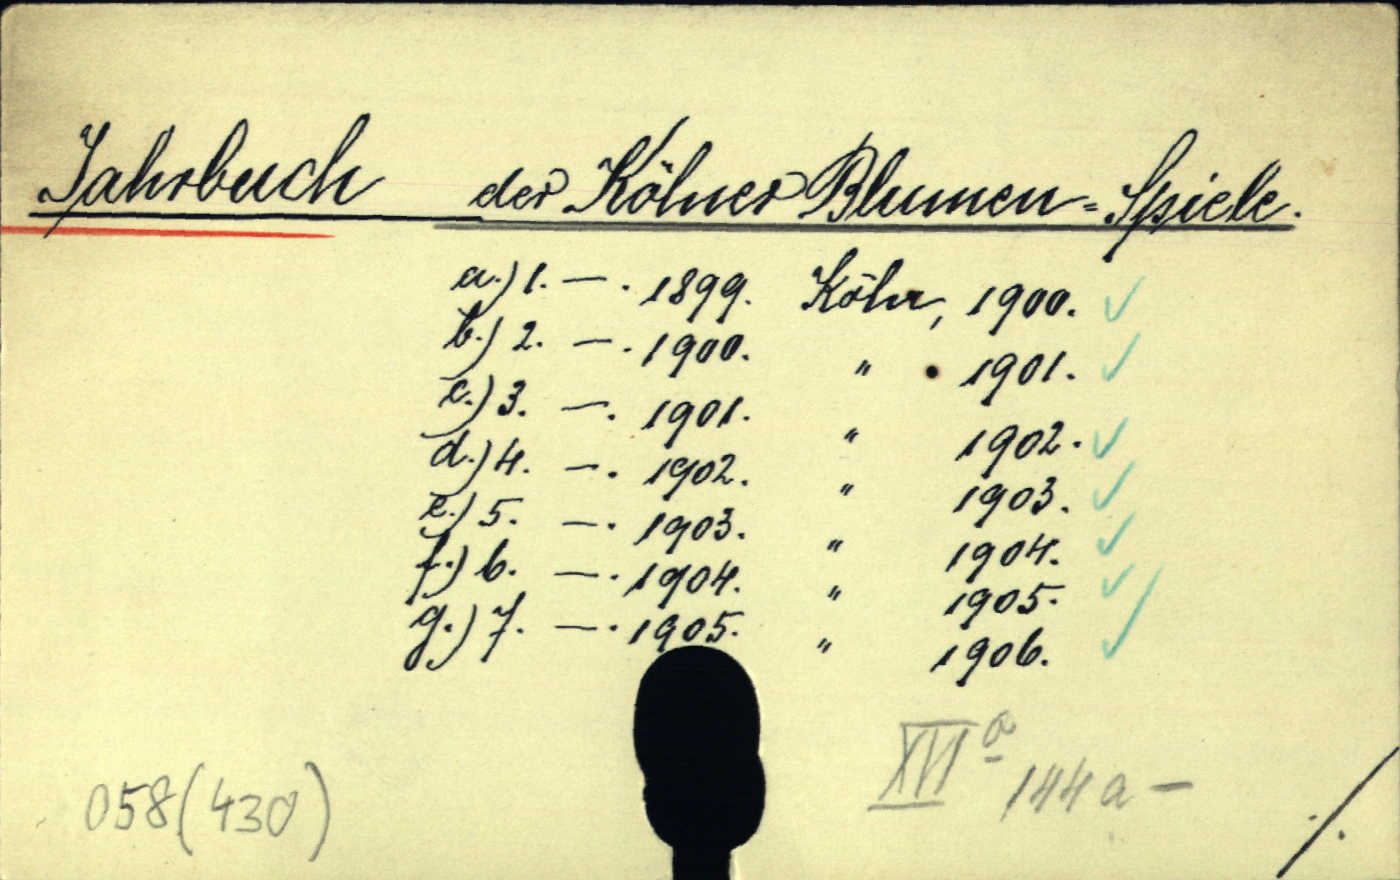 Jahrbuch der Kölner Blumen=Spiele.
a.) 1. — . 1899. Köln, 1900. ✓
b.) 2. — . 1900. " 1901. ✓
c.) 3. — . 1901. " 1902. ✓
d.) 4. — . 1902. " 1903. ✓
e.) 5. — . 1903. " 1904. ✓
f.) 6. — . 1904. " 1905. ✓
g.) 7. — . 1905. " 1906. ✓
XVI a 144 a —
058(430)
./.